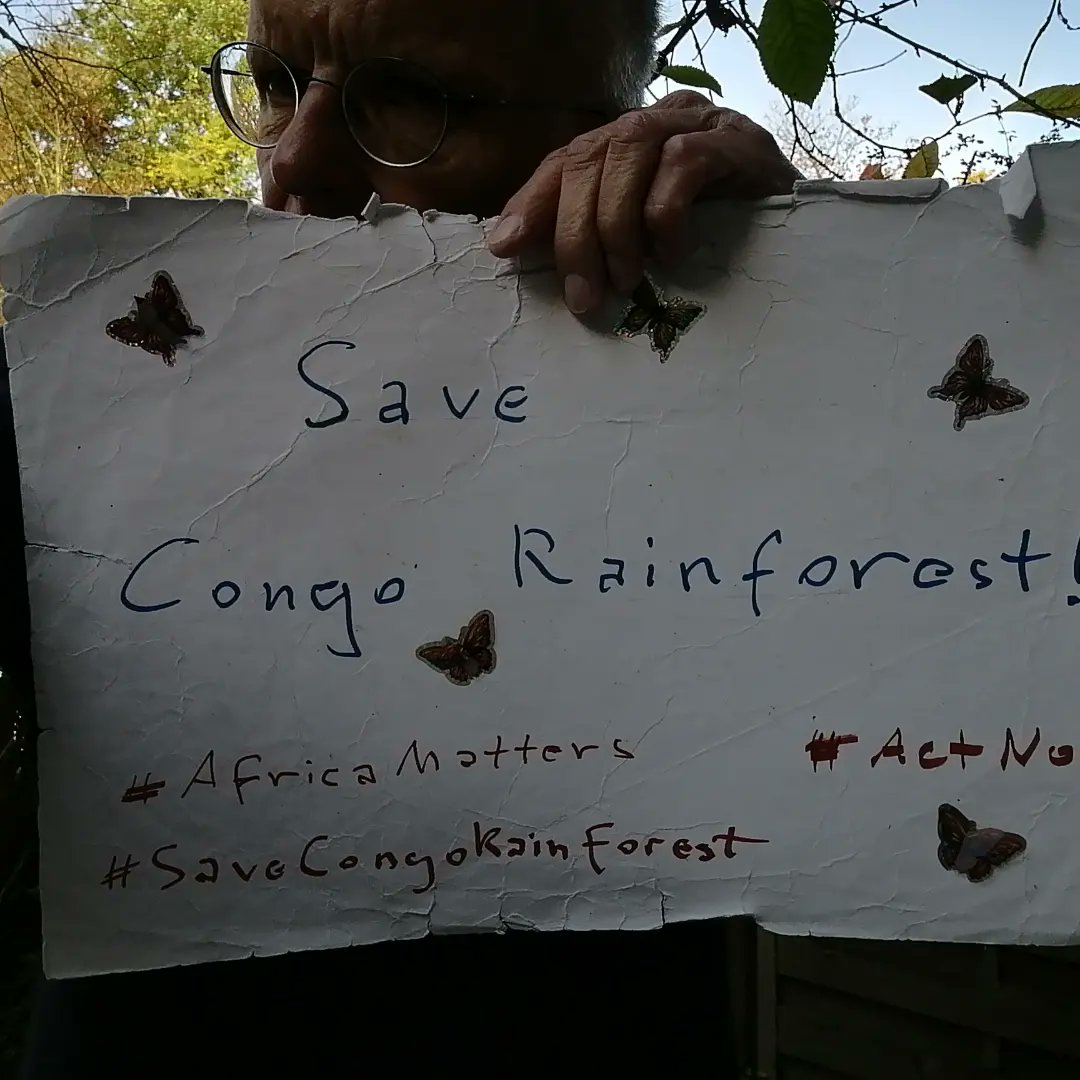 Save
Congo Rainforest!
#AfricaMatters #ActNo
#SaveCongoRainforest